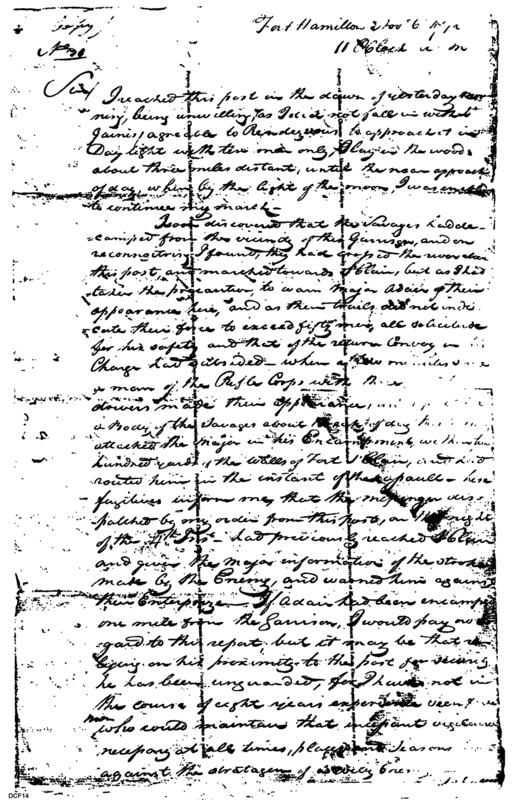 Copy
No 30
Fort Hamilton 6
11 OClock
Sir
I reached this post in the dawn of yesterday
being unwilling, as I did not fall in with
Gaines, agreeable to Rendezvous to approach it in
Day light with ten men only, I lay in the woods
about three miles distant, until the near approach
of day, when by the light of the moon, I was enabled
to continue my march—
I soon discovered that the Savages had de-
camped from the vicinity of this Garrison, and on
reconnoitring I found, they had crossed the river
this post, and marched towards St Clair, but as I had
taken the precaution, to warn Major Adair of their
appearance here, and as their trails did not indi
cate their force to exceed fifty men, all solicitude
for his safety and that of the return Convoy in
Charge had subsided— when a few minutes
a man of the Rifle Corps with three
drivers made their appearance
a Body of the Savages about day this
attacked the Major in his Encampment, within two
hundred yards of the Walls of Fort St Clair, and had
routed him in the instant of the assault—
fugitives inform me, that the messenger dis
patched by my order from this post, on the night
of the 4th had previously reached St Clair
and given the Major information of the
made by the Enemy, and warned him against
their Enterprize— If Adair had been encamped
one mile from the Garrison, I would pay no re
gard to this report, but it may be that re
lying on his proximity to the post for security
he has been unguarded, for I have not in
the course of eight years experience seen
man who could maintain that vigilance
necessary at all times, places and Seasons
against the stratagem of a wily Enemy
DCF14